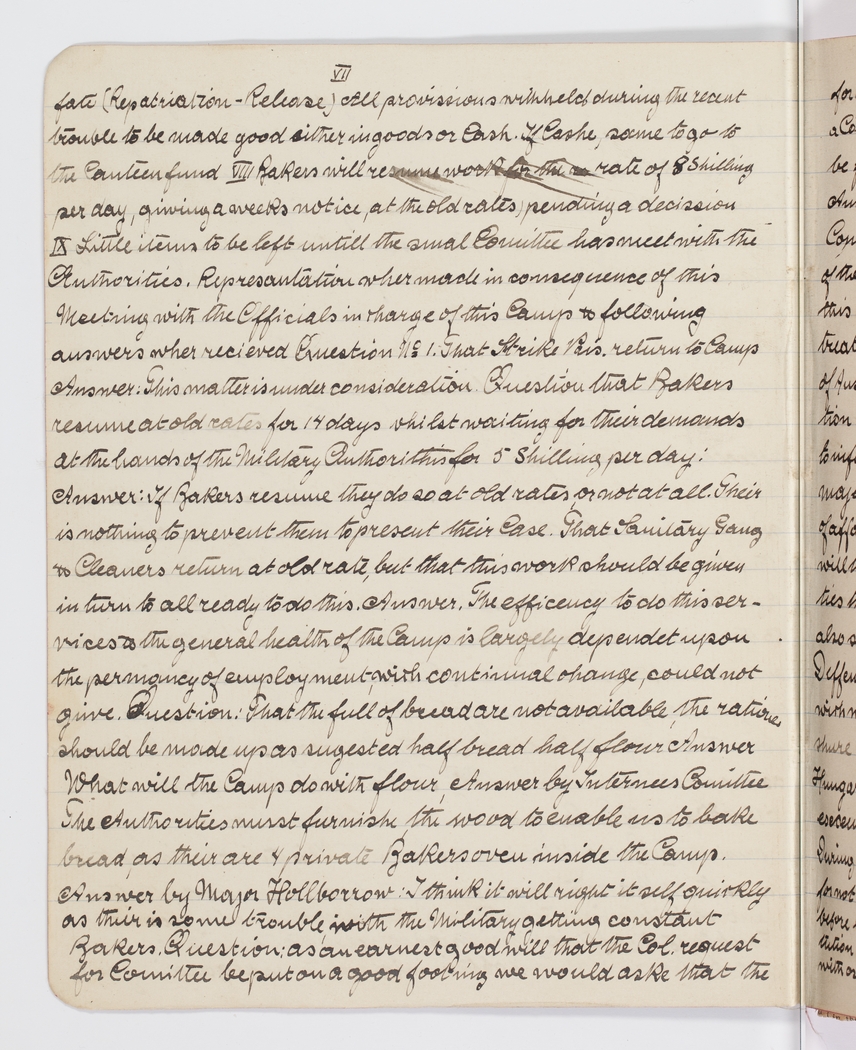 VII
fate (Repatriation - Release) All provissions withheld during the recent
trouble to be made good either in goods or Cash. If Cashe, same to go to
the Canteen fund VIII Bakers will resume work for the rate of 8 Shilling
per day, giving a weeks notice, at the old rates, pending a decission
IX Little items to be left untill the smal Comittee has meet with the
Authorities. Represantation wher made in consequence of this
Meetning with the Officials in charge of this Camp & following
answers wher recieved Question No 1. That Strike Pris. return to Camp
Answer: This matter is under consideration. Question that Bakers
resume at old rates for 14 days whilst waiting for their demands
at the hands of the Military Authorithis for 5 Shilling per day:
Answer: If Bakers resume they do so at old rates, or not at all. Their
is nothing to prevent them to present their Case. That Sanitary Gang
& Cleaners return at old rate, but that this work should be given
in turn to all ready to do this. Answer. The efficency to do this ser-
vices to the general health of the Camp is largely dependet upon
the permancy of employment, with continual change, could not
give. Question: That the full of bread are not available, the rations
should be made up as sugested half bread half flour Answer
What will the Camp do with flour, Answer by Internees Comittee
The Authorities musst furnishe the wood to enable us to bake
bread, as their are 4 private Bakers oven inside the Camp.
Answer by Major Hollborrow: I think it will right it self quickly
as their is some trouble with the Military getting constant
Bakers. Question: as an earnest good will that the Col. request
for Comittee be put on a good footning we would aske that the